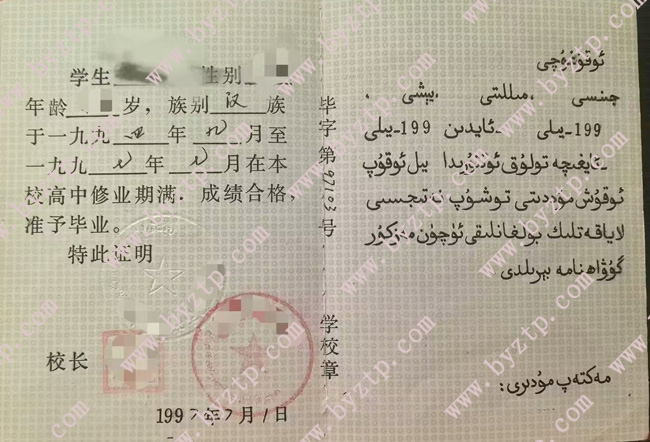 学生 性别
年龄 岁，族别汉族
于一九九四年九月至
一九九七年七月在本
校高中修业期满．成绩合格，
准予毕业。
特此证明
校长
1997年7月1日
毕字第97103号
学校章
ئوقۇغۇچى
جىنسى ، مىللىتى ، يېشى ،
199-يىلى -ئايدىن 199-يىلى
-ئايغىچە تولۇق ئوتتۇرىدا يىل ئوقۇپ
ئوقۇش مۇددىتى توشۇپ نەتىجىسى
لاياقەتلىك بولغانلىقى ئۈچۈن مەزكۇر
گۇۋاھنامە بېرىلدى
مەكتەپ مۇدىرى:
www.byztp.com